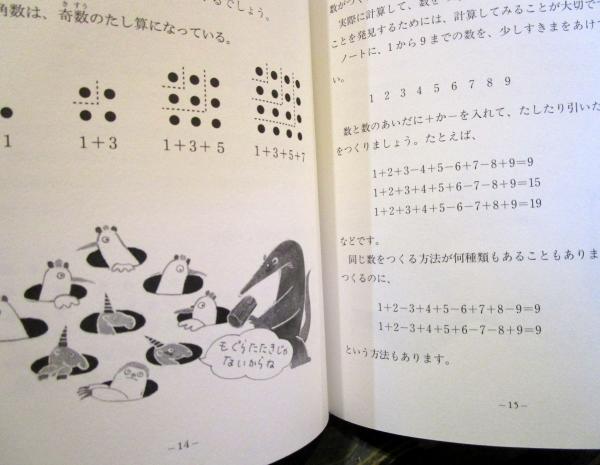 るでしょう。
角数は、奇数のたし算になっている。
きすう
1
1+3
1+3+5
1+3+5+7
もぐらたたきじゃ
ないからな
−14−
実際に計算して、数を
ことを発見するためには、計算してみることが大切で
ノートに、1から9までの数を、少しすきまをあけ
い。
1 2 3 4 5 6 7 8 9
数と数のあいだに+か−を入れて、たしたり引いた
をつくりましょう。たとえば、
1+2+3−4+5−6+7−8+9=9
1+2+3+4+5+6−7−8+9=15
1+2+3+4+5−6−7+8+9=19
などです。
同じ数をつくる方法が何種類もあることもありま
つくるのに、
1+2−3+4+5−6+7+8−9=9
1+2−3+4+5+6−7−8+9=9
という方法もあります。
−15−